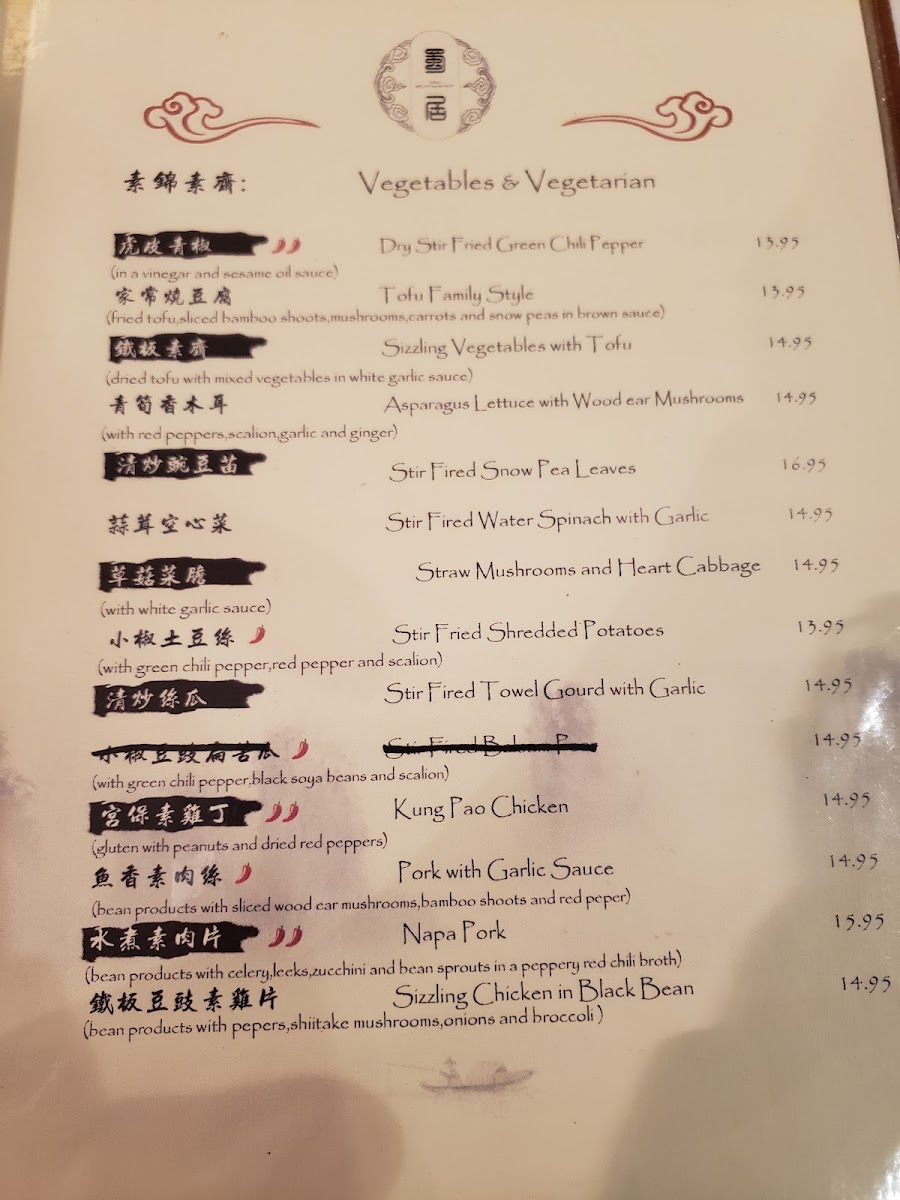 蜀
居
素錦素齊: Vegetables & Vegetarian
虎皮青椒 Dry Stir Fried Green Chili Pepper 13.95
(in a vinegar and sesame oil sauce)
家常燒豆腐 Tofu Family Style 13.95
(fried tofu,sliced bamboo shoots,mushrooms,carrots and snow peas in brown sauce)
鐵板素齊 Sizzling Vegetables with Tofu 14.95
(dried tofu with mixed vegetables in white garlic sauce)
青筍香木耳 Asparagus Lettuce with Wood ear Mushrooms 14.95
(with red peppers,scalion,garlic and ginger)
清炒豌豆苗 Stir Fired Snow Pea Leaves 16.95
蒜茸空心菜 Stir Fired Water Spinach with Garlic 14.95
草菇菜膽 Straw Mushrooms and Heart Cabbage 14.95
(with white garlic sauce)
小椒土豆絲 Stir Fried Shredded Potatoes 13.95
(with green chili pepper,red pepper and scalion)
清炒絲瓜 Stir Fired Towel Gourd with Garlic 14.95
小椒豆豉扁苦瓜 Stir Fired Balsam Pear 14.95
(with green chili pepper,black soya beans and scalion)
宮保素雞丁 Kung Pao Chicken 14.95
(gluten with peanuts and dried red peppers)
魚香素肉絲 Pork with Garlic Sauce 14.95
(bean products with sliced wood ear mushrooms,bamboo shoots and red peper)
水煮素肉片 Napa Pork 15.95
(bean products with celery,leeks,zucchini and bean sprouts in a peppery red chili broth)
鐵板豆豉素雞片 Sizzling Chicken in Black Bean 14.95
(bean products with pepers,shiitake mushrooms,onions and broccoli )